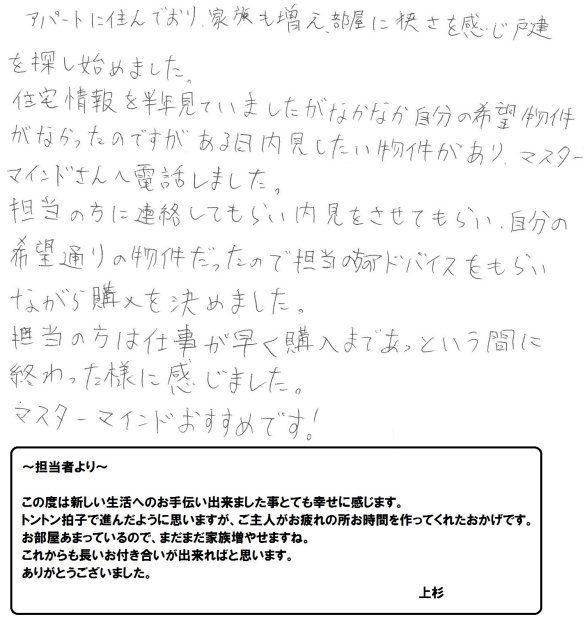 アパートに住んでおり、家族も増え、部屋に狭さを感じ戸建
を探し始めました。
住宅情報を半年見ていましたがなかなか自分の希望物件
がなかったのですが、ある日内見したい物件があり、マスター
マインドさんへ電話しました。
担当の方に連絡してもらい内見をさせてもらい、自分の
希望通りの物件だったので担当の方アドバイスをもらい
ながら購入を決めました。
担当の方は仕事が早く購入まであっという間に
終わった様に感じました。
マスターマインドおすすめです！
～担当者より～
この度は新しい生活へのお手伝い出来ました事とても幸せに感じます。
トントン拍子で進んだように思いますが、ご主人がお疲れの所お時間を作ってくれたおかげです。
お部屋あまっているので、まだまだ家族増やせますね。
これからも長いお付き合いが出来ればと思います。
ありがとうございました。
上杉